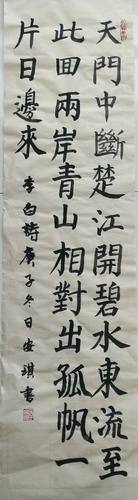 天門中斷楚江開碧水東流至
此回兩岸青山相對出孤帆一
片日邊來
李白詩庚子冬日安琪書